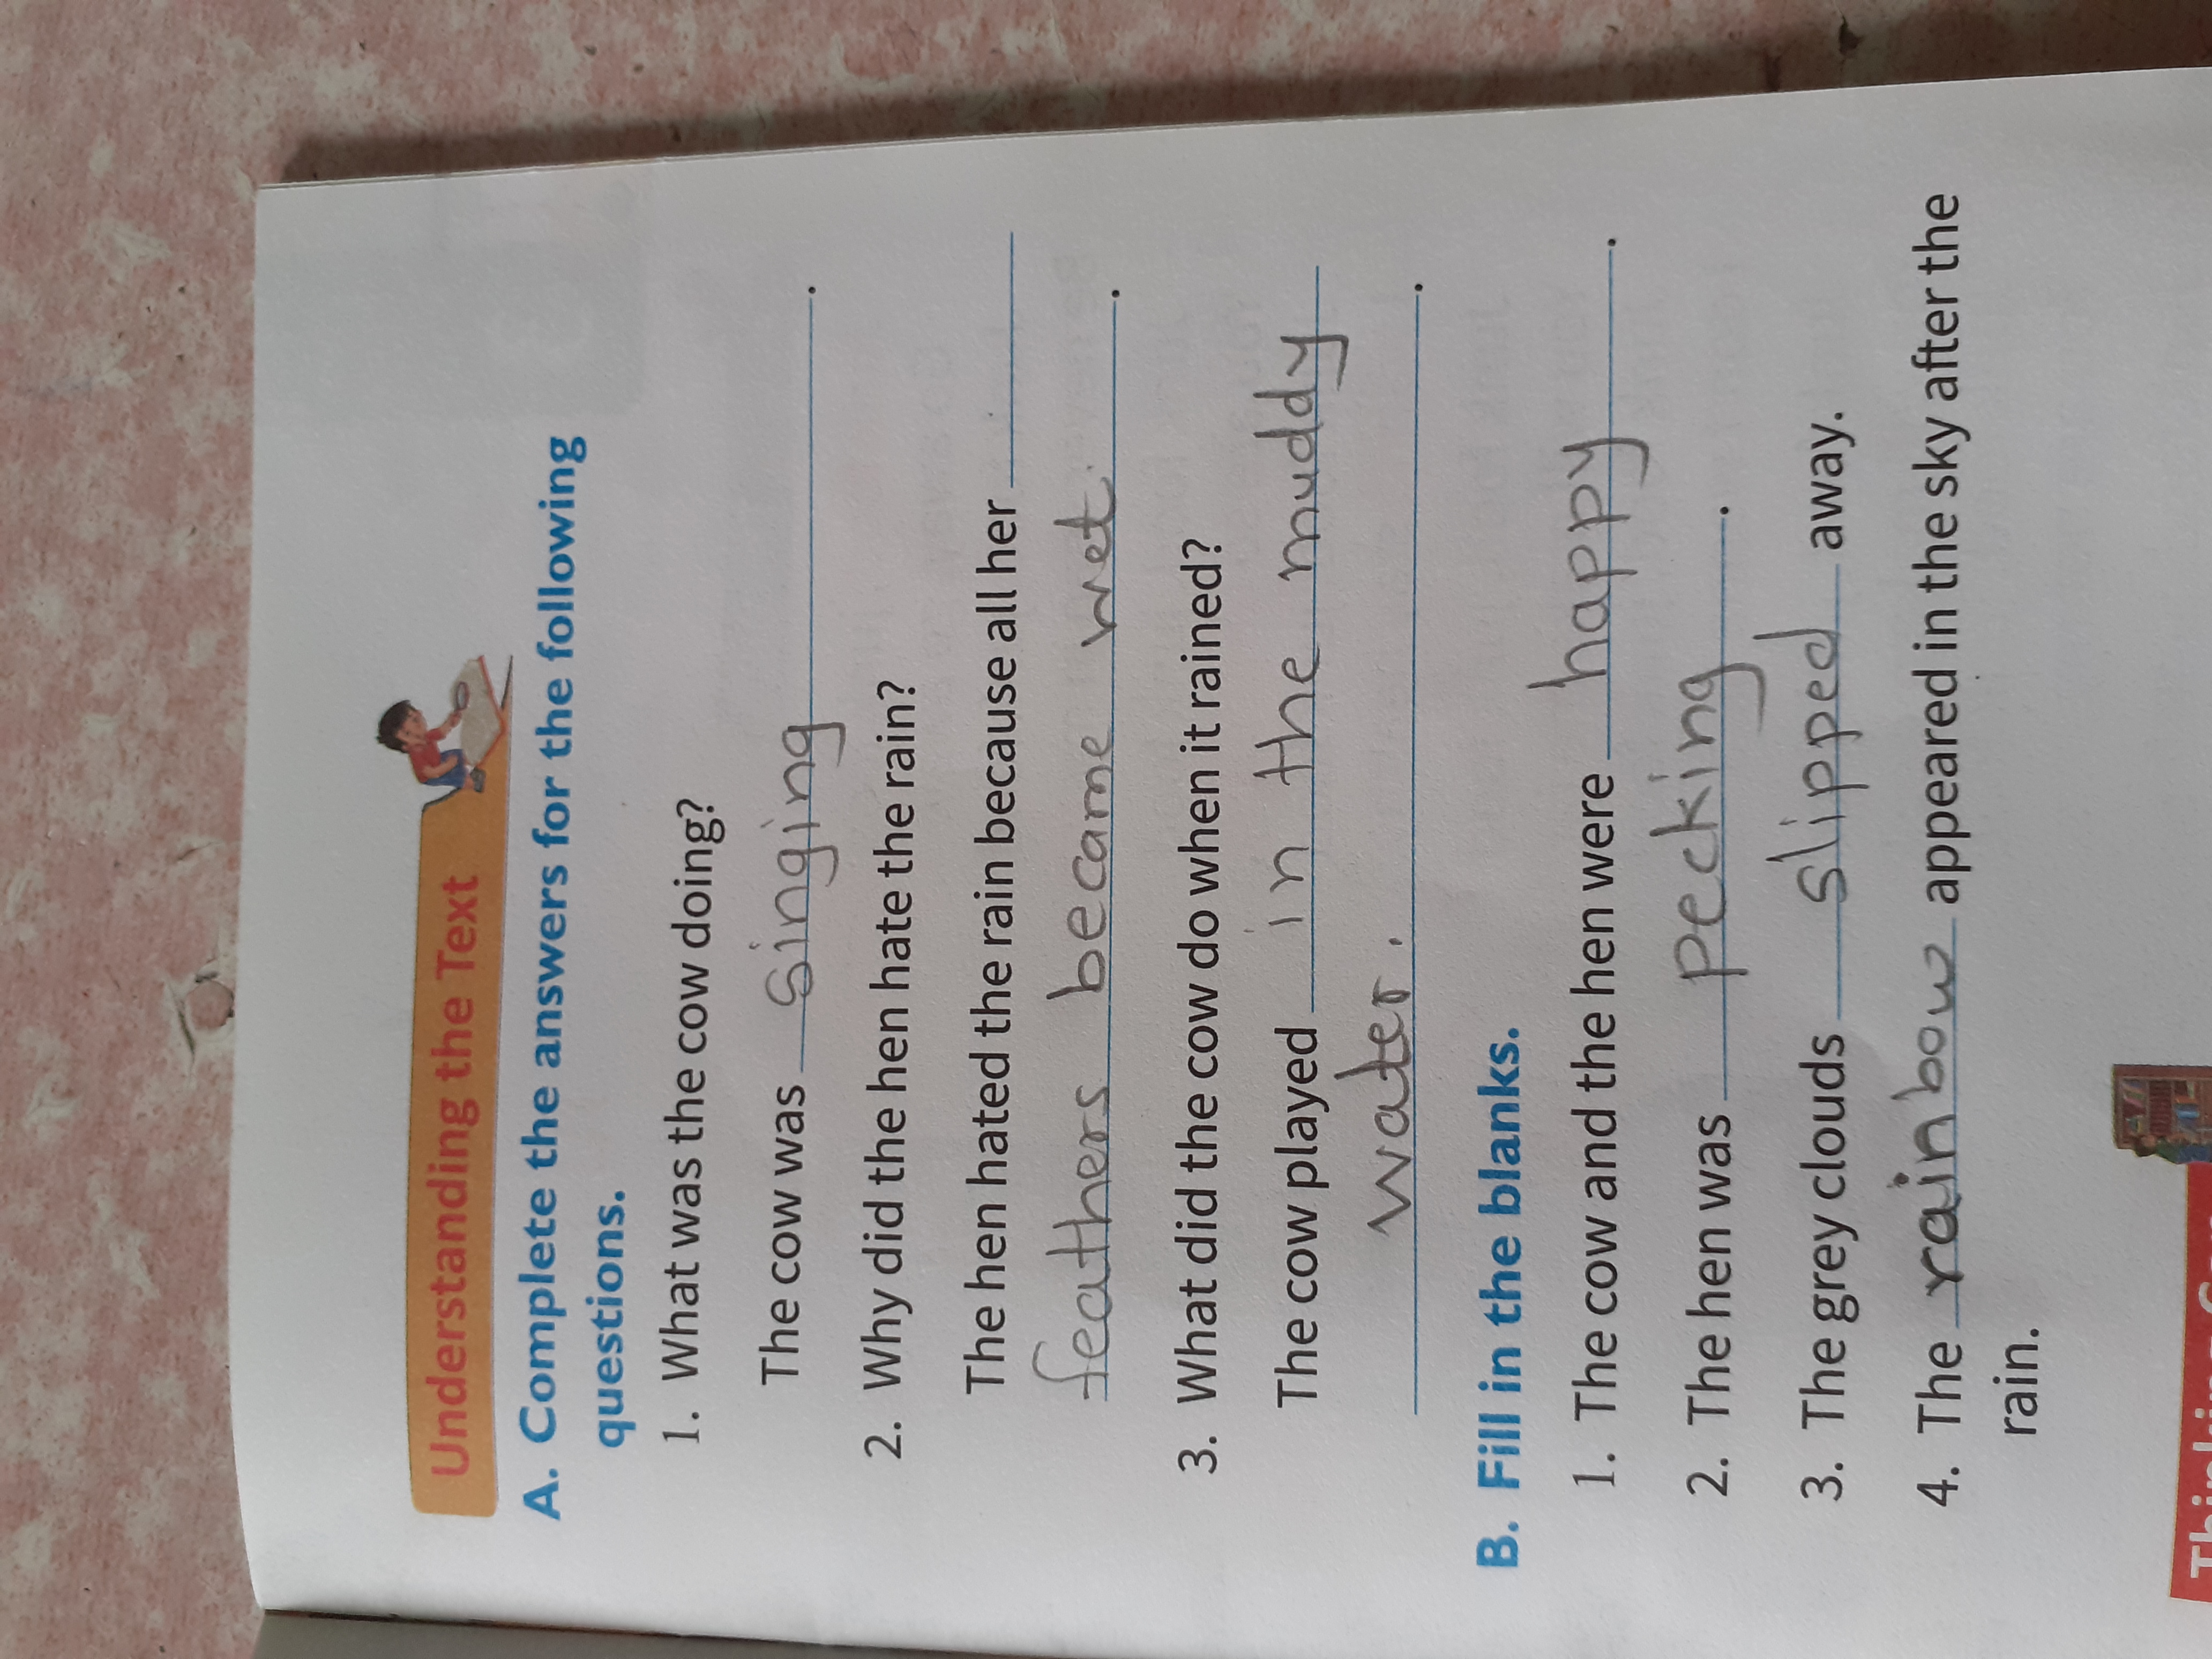 Understanding the Text
A. Complete the answers for the following
questions.
1. What was the cow doing?
The cow was singing.
2. Why did the hen hate the rain?
The hen hated the rain because all her
feathers became wet.
3. What did the cow do when it rained?
The cow played in the muddy
water.
B. Fill in the blanks.
1. The cow and the hen were happy.
2. The hen was pecking.
3. The grey clouds slipped away.
4. The rainbow appeared in the sky after the
rain.